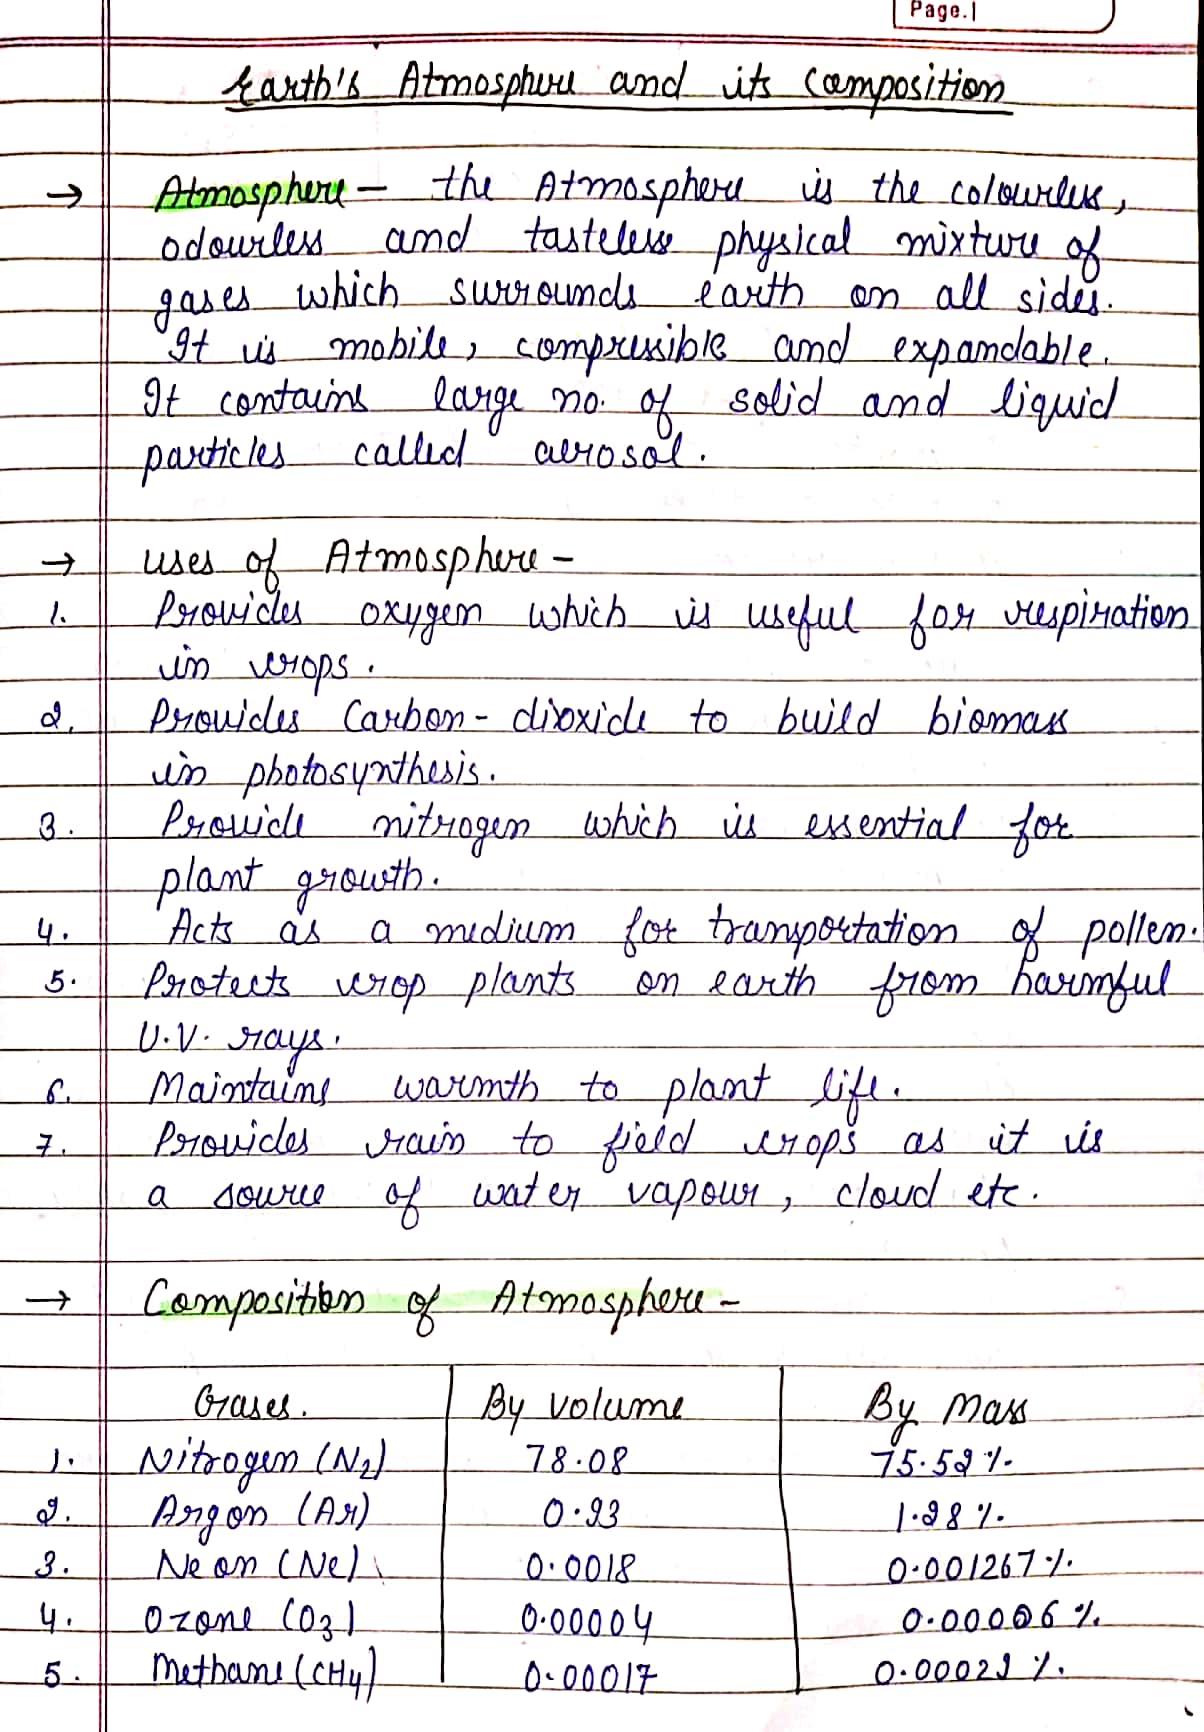 Page.1
Earth's Atmosphere and its Composition
→ Atmosphere - the Atmosphere is the colourless,
odourless and tasteless physical mixture of
gases which surrounds earth on all sides.
It is mobile, compressible and expandable.
It contains large no. of solid and liquid
particles called aerosol.
→ uses of Atmosphere -
1. Provides oxygen which is useful for respiration
in crops.
2. Provides Carbon-dioxide to build biomass
in photosynthesis.
3. Provide nitrogen which is essential for
plant growth.
4. Acts as a medium for transportation of pollen.
5. Protects crop plants on earth from harmful
U.V. rays.
6. Maintains warmth to plant life.
7. Provides rain to field crops as it is
a source of water vapour, cloud etc.
→ Composition of Atmosphere -
Gases. By volume By Mass
1. Nitrogen (N2) 78.08 75.52%
2. Argon (Ar) 0.93 1.28%
3. Neon (Ne) 0.0018 0.001267%
4. Ozone (O3) 0.00004 0.00006%
5. Methane (CH4) 0.00017 0.00029%